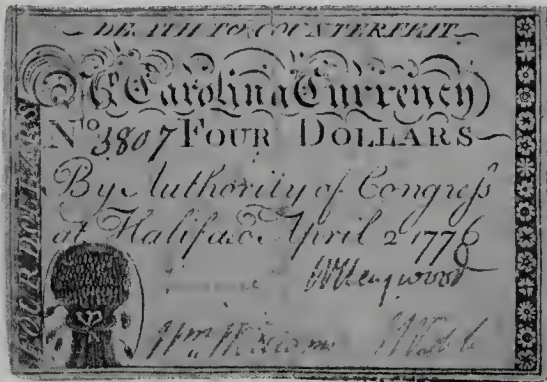 DEATH TO COUNTERFEIT
N. Carolina Currency
No 3807 FOUR DOLLARS
By Authority of Congress
at Halifax April 2 1776
FOUR DOLLARS
Wm Williams